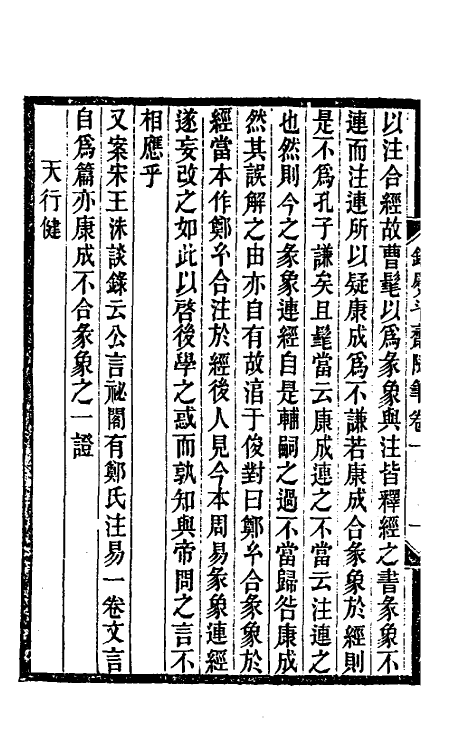 以注合經故曹髦以爲彖象與注皆釋經之書彖象不
連而注連所以疑康成爲不謙若康成合彖象於經則
是不爲孔子謙矣且髦當云康成連之不當云注連之
也然則今之彖象連經自是輔嗣之過不當歸咎康成
然其誤解之由亦自有故淯于俊對曰鄭𤣥合彖象於
經當本作鄭𤣥合注於經後人見今本周易彖象連經
遂妄改之如此以啓後學之惑而孰知與帝問之言不
相應乎
又案宋王洙談錄云公言祕閣有鄭氏注易一卷文言
自爲篇亦康成不合彖象之一證
天行健
斗齋隨筆卷一
一